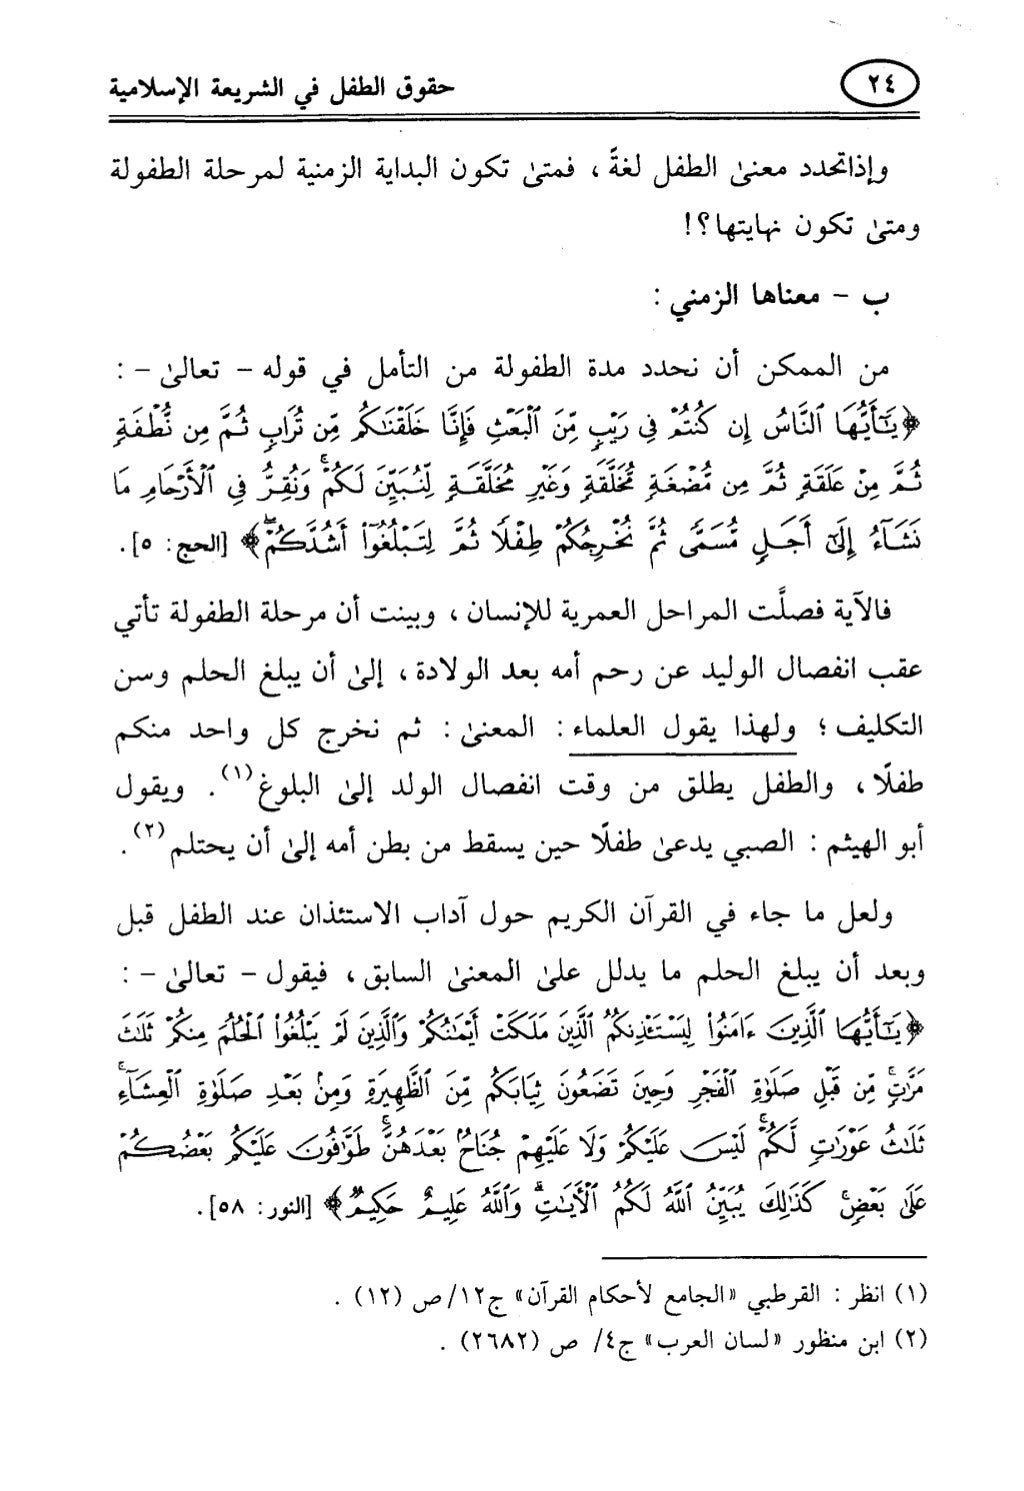 ٢٤ حقوق الطفل في الشريعة الإسلامية
وإذاتحدد معنىٰ الطفل لغةً ، فمتىٰ تكون البداية الزمنية لمرحلة الطفولة
ومتىٰ تكون نهايتها؟!
ب – معناها الزمني :
من الممكن أن نحدد مدة الطفولة من التأمل في قوله – تعالىٰ – :
﴿يَـٰٓأَيُّهَا ٱلنَّاسُ إِن كُنتُمْ فِى رَيْبٍ مِّنَ ٱلْبَعْثِ فَإِنَّا خَلَقْنَـٰكُم مِّن تُرَابٍ ثُمَّ مِن نُّطْفَةٍ
ثُمَّ مِنْ عَلَقَةٍ ثُمَّ مِن مُّضْغَةٍ مُّخَلَّقَةٍ وَغَيْرِ مُخَلَّقَةٍ لِّنُبَيِّنَ لَكُمْ ۚ وَنُقِرُّ فِى ٱلْأَرْحَامِ مَا
نَشَآءُ إِلَىٰٓ أَجَلٍ مُّسَمًّى ثُمَّ نُخْرِجُكُمْ طِفْلًا ثُمَّ لِتَبْلُغُوٓا۟ أَشُدَّكُمْ ۖ﴾ [الحج: ٥].
فالآية فصلَّت المراحل العمرية للإنسان ، وبينت أن مرحلة الطفولة تأتي
عقب انفصال الوليد عن رحم أمه بعد الولادة ، إلىٰ أن يبلغ الحلم وسن
التكليف ؛ ولهذا يقول العلماء : المعنىٰ : ثم نخرج كل واحد منكم
طفلًا ، والطفل يطلق من وقت انفصال الولد إلىٰ البلوغ(١) . ويقول
أبو الهيثم : الصبي يدعىٰ طفلًا حين يسقط من بطن أمه إلىٰ أن يحتلم(٢) .
ولعل ما جاء في القرآن الكريم حول آداب الاستئذان عند الطفل قبل
وبعد أن يبلغ الحلم ما يدلل علىٰ المعنىٰ السابق ، فيقول – تعالىٰ – :
﴿يَـٰٓأَيُّهَا ٱلَّذِينَ ءَامَنُوا۟ لِيَسْتَـْٔذِنكُمُ ٱلَّذِينَ مَلَكَتْ أَيْمَـٰنُكُمْ وَٱلَّذِينَ لَمْ يَبْلُغُوا۟ ٱلْحُلُمَ مِنكُمْ ثَلَـٰثَ
مَرَّٰتٍ ۚ مِّن قَبْلِ صَلَوٰةِ ٱلْفَجْرِ وَحِينَ تَضَعُونَ ثِيَابَكُم مِّنَ ٱلظَّهِيرَةِ وَمِنۢ بَعْدِ صَلَوٰةِ ٱلْعِشَآءِ ۚ
ثَلَـٰثُ عَوْرَٰتٍ لَّكُمْ ۚ لَيْسَ عَلَيْكُمْ وَلَا عَلَيْهِمْ جُنَاحٌۢ بَعْدَهُنَّ ۚ طَوَّٰفُونَ عَلَيْكُم بَعْضُكُمْ
عَلَىٰ بَعْضٍ ۚ كَذَٰلِكَ يُبَيِّنُ ٱللَّهُ لَكُمُ ٱلْـَٔايَـٰتِ ۗ وَٱللَّهُ عَلِيمٌ حَكِيمٌ﴾ [النور: ٥٨].
(١) انظر : القرطبي «الجامع لأحكام القرآن» ج١٢/ص (١٢) .
(٢) ابن منظور «لسان العرب» ج٤/ ص (٢٦٨٢) .